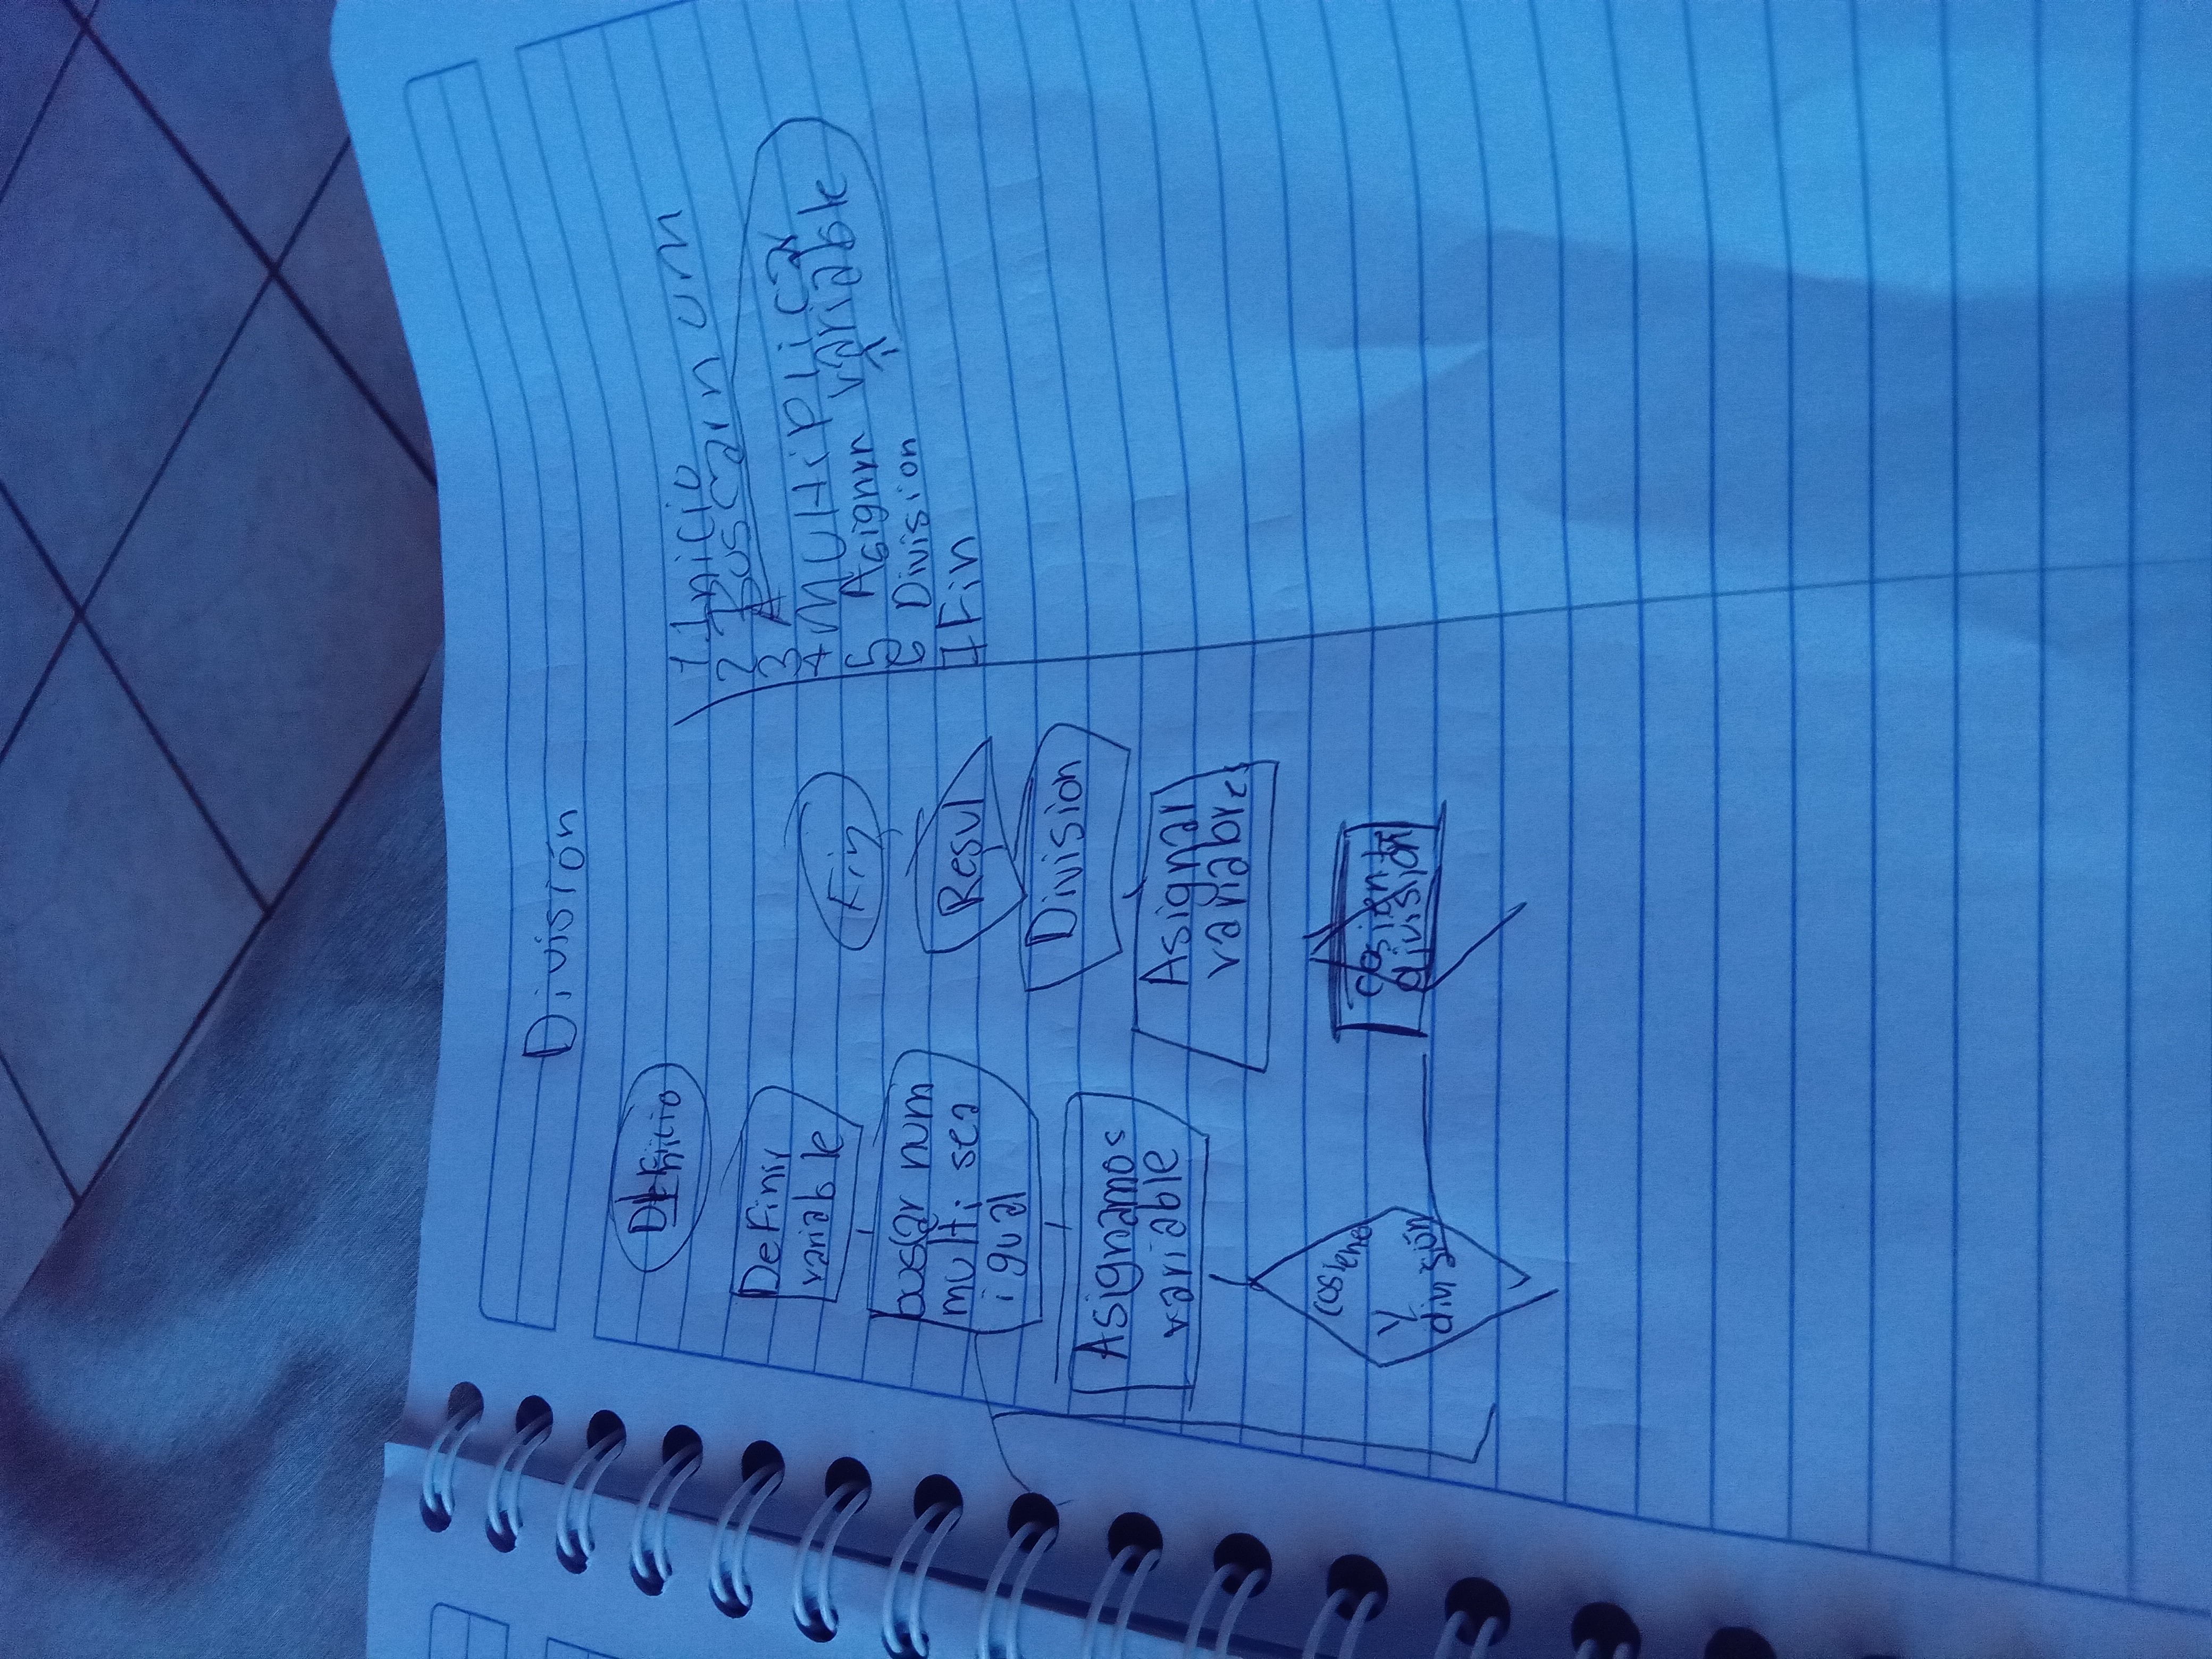 División
Inicio
Definir
variable
buscar num
multi sea
igual
Asignamos
variable
y
división
división
Asignar
variable
Division
Resul
Fin
1 Inicio
2 Buscar n um
3 A
4 Multiplica
5 Asignar variable
6 Division
7 Fin